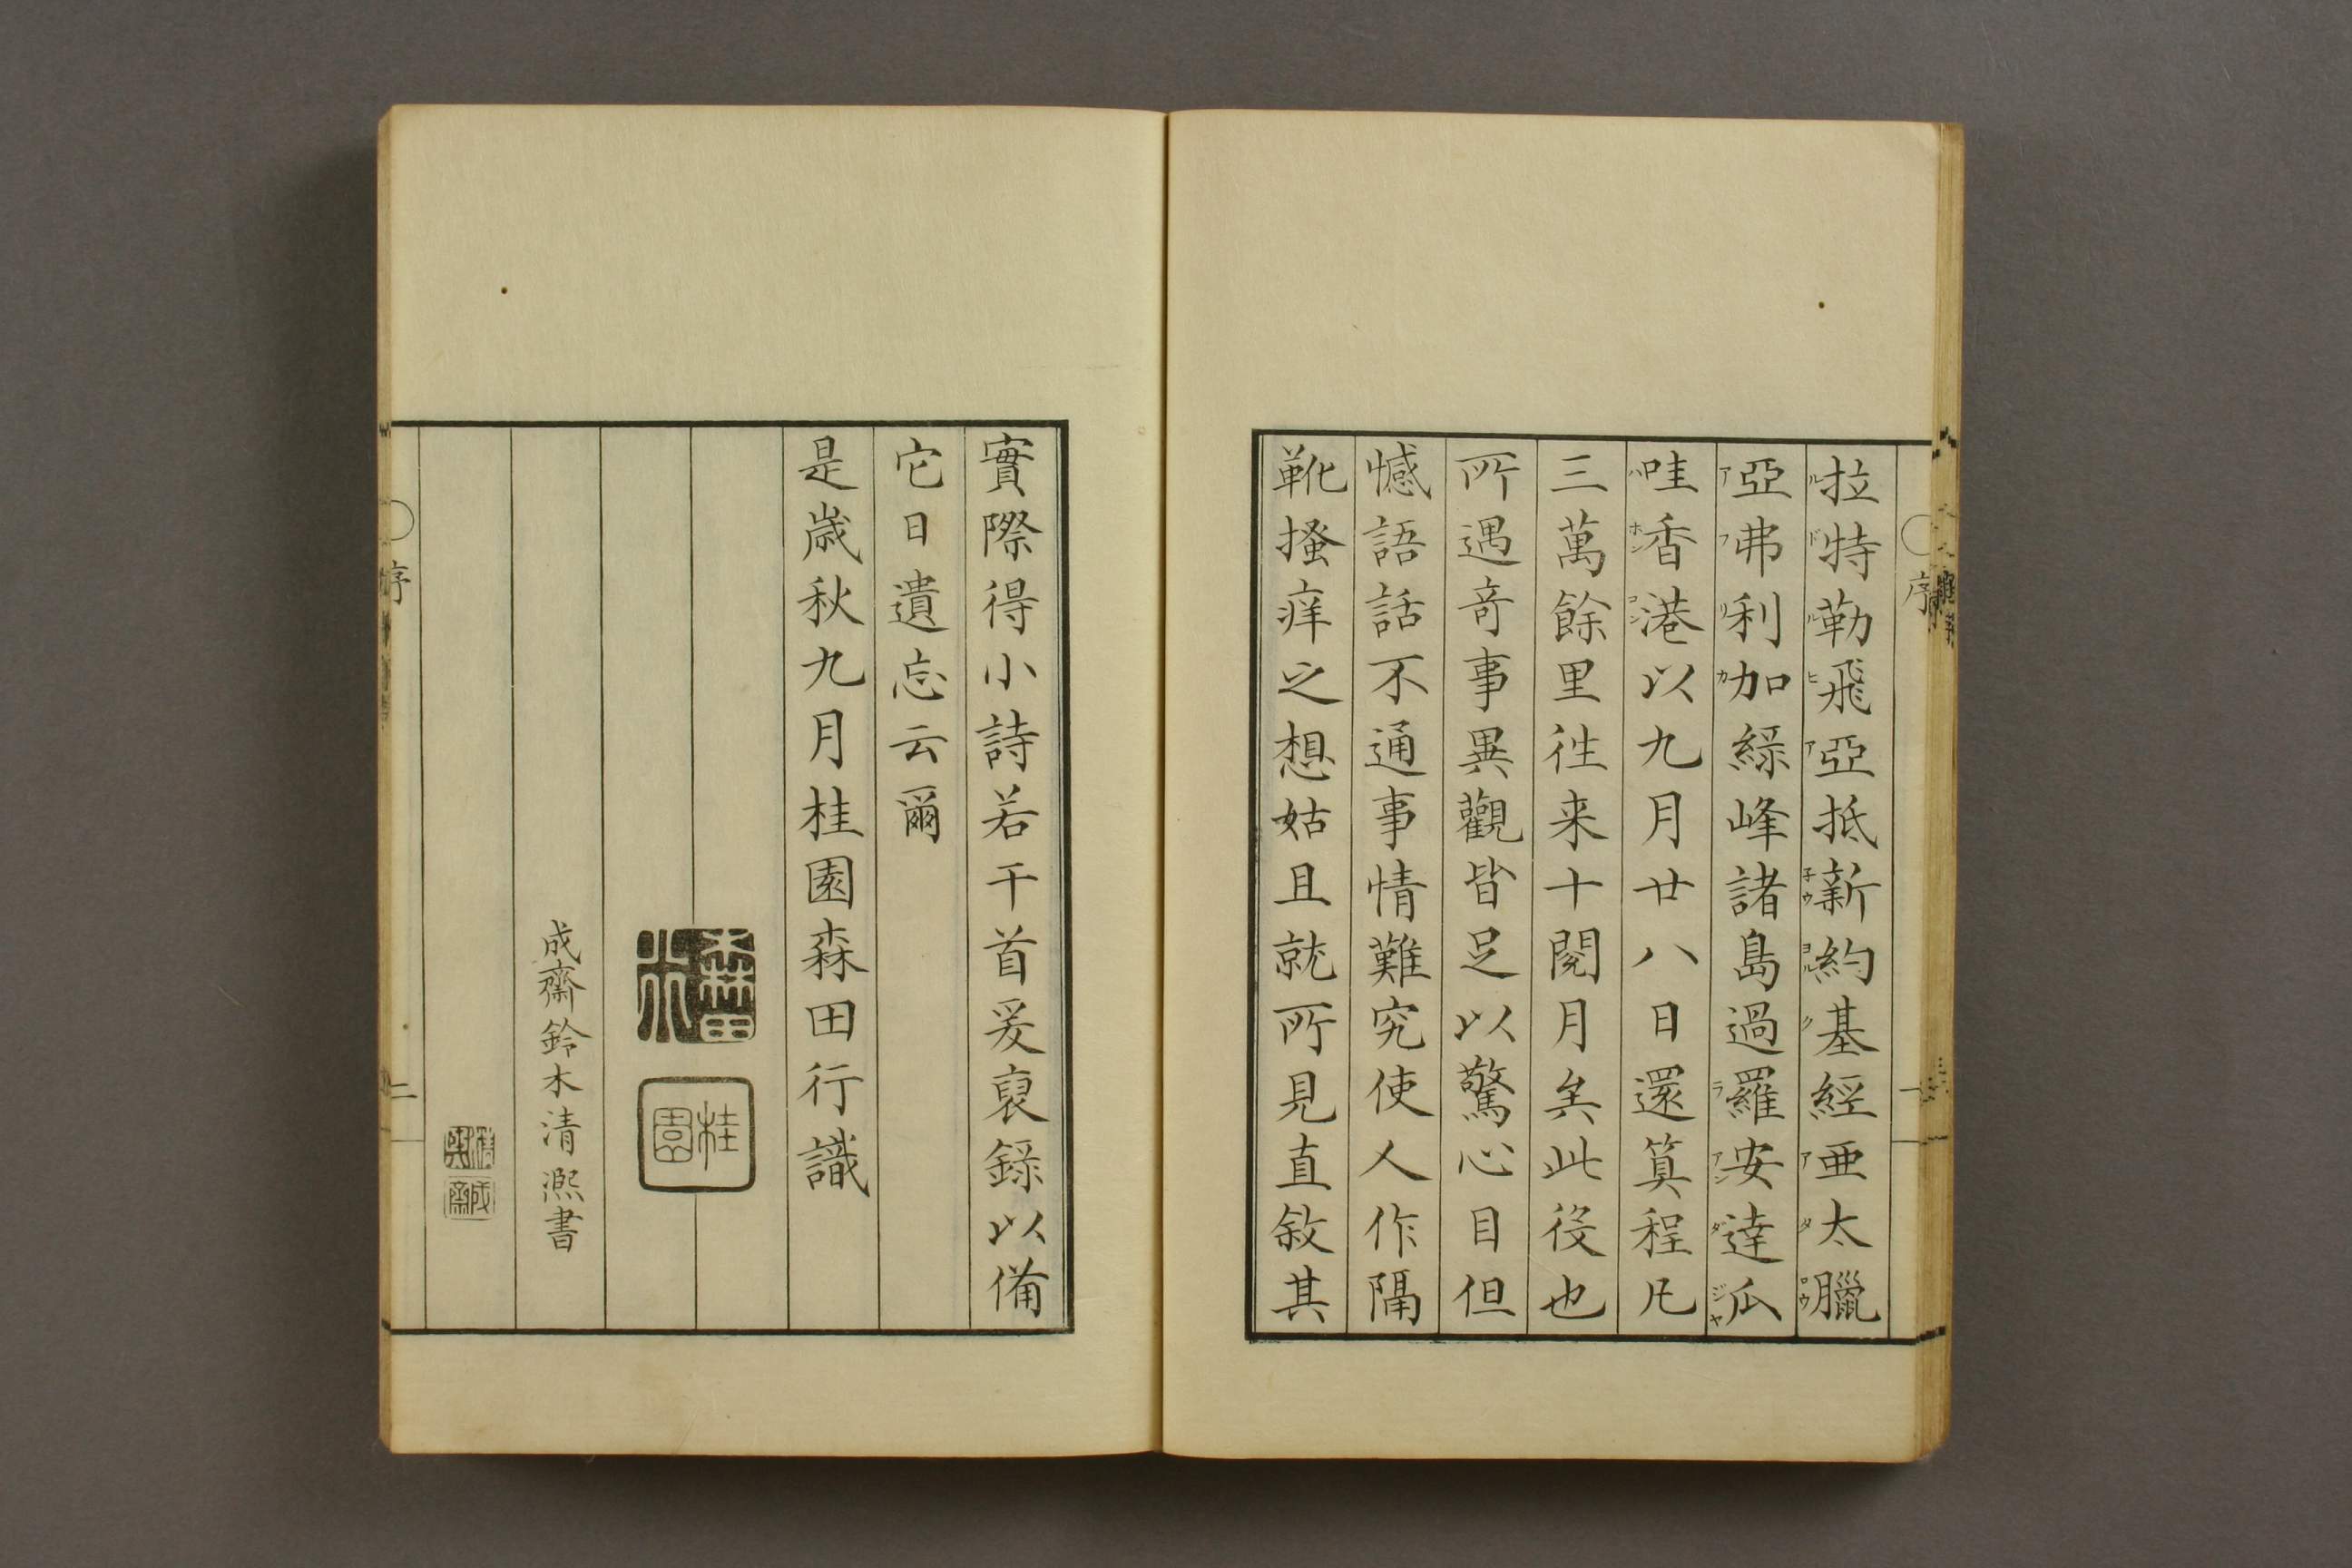 拉特勒飛亞抵新約基經亜太臘
亞弗利加綠峰諸島過羅安達瓜
哇香港以九月廿八日還算程凡
三萬餘里往来十閱月矣此役也
所遇奇事異觀皆足以驚心目但
憾語話不通事情難究使人作隔
靴搔痒之想姑且就所見直敘其
序
一
實際得小詩若干首爰裒錄以備
它日遺忘云爾
是歲秋九月桂園森田行識
桂園
成齋鈴木清凞書
序
二